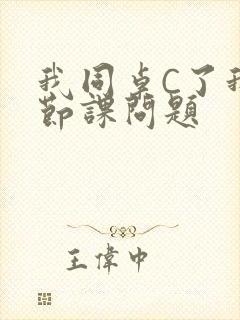 我同桌C了我
節課問題
王偉中